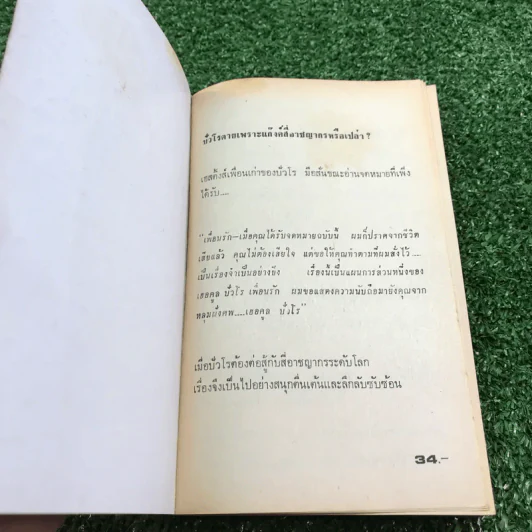 ปัวโรตายเพราะแก๊งค์สี่อาชญากรหรือเปล่า ?
เฮสติ้งส์เพื่อนเก่าของปัวโร มือสั่นขณะอ่านจดหมายที่เพิ่ง
ได้รับ....
"เพื่อนรัก—เมื่อคุณได้รับจดหมายฉบับนี้ ผมก็ปราศจากชีวิต
เสียแล้ว คุณไม่ต้องเสียใจ แต่ขอให้คุณทำตามที่ผมสั่งไว้....
เป็นเรื่องจำเป็นอย่างยิ่ง เรื่องนี้เป็นแผนการส่วนหนึ่งของ
เฮอคูล ปัวโร เพื่อนรัก ผมขอแสดงความนับถือมายังคุณจาก
หลุมฝังศพ....เฮอคูล ปัวโร"
เมื่อปัวโรต้องต่อสู้กับสี่อาชญากรระดับโลก
เรื่องจึงเป็นไปอย่างสนุกตื่นเต้นและลึกลับซับซ้อน
34.-